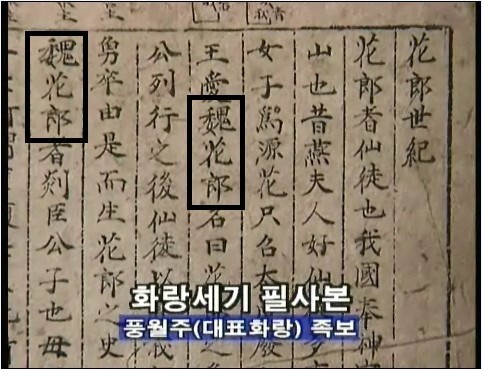 花郎世紀
花郎者仙徒也我國奉神
山也昔燕夫人好仙
女子爲源花只召太
王愛魏花郎名曰花
公列行之後仙徒以
勇卒由是而生花郎之史
魏花郎者剡臣公子也母
화랑세기 필사본
풍월주(대표화랑) 족보